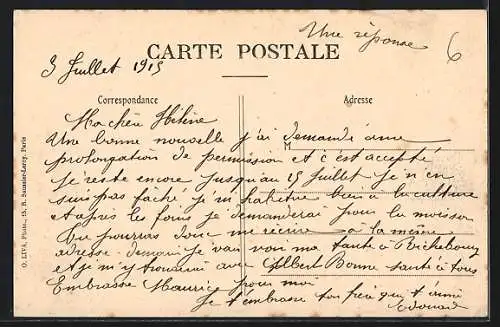 Une réponse
6
CARTE POSTALE
3 Juillet 1915
Correspondance
Adresse
Ma chère Hélène
Une bonne nouvelle j'ai demandé une
M
prolongation de permission et c'est accepté
je reste encore jusqu'au 15 Juillet je n'en
suis pas fâché je m'habitue bien à la culture
et après les foins je demanderai pour la moisson
Tu pourras donc me récrire à la même
adresse demain je vais voir ma tante à Richebourg
et je m'y trouverai avec Albert Bonne santé à tous
Embrasse Maurice pour moi
je t'embrasse ton frère qui t'aime
Edouard
O. LIVA, Photo., 15, R. Saunier-Leroy, Paris